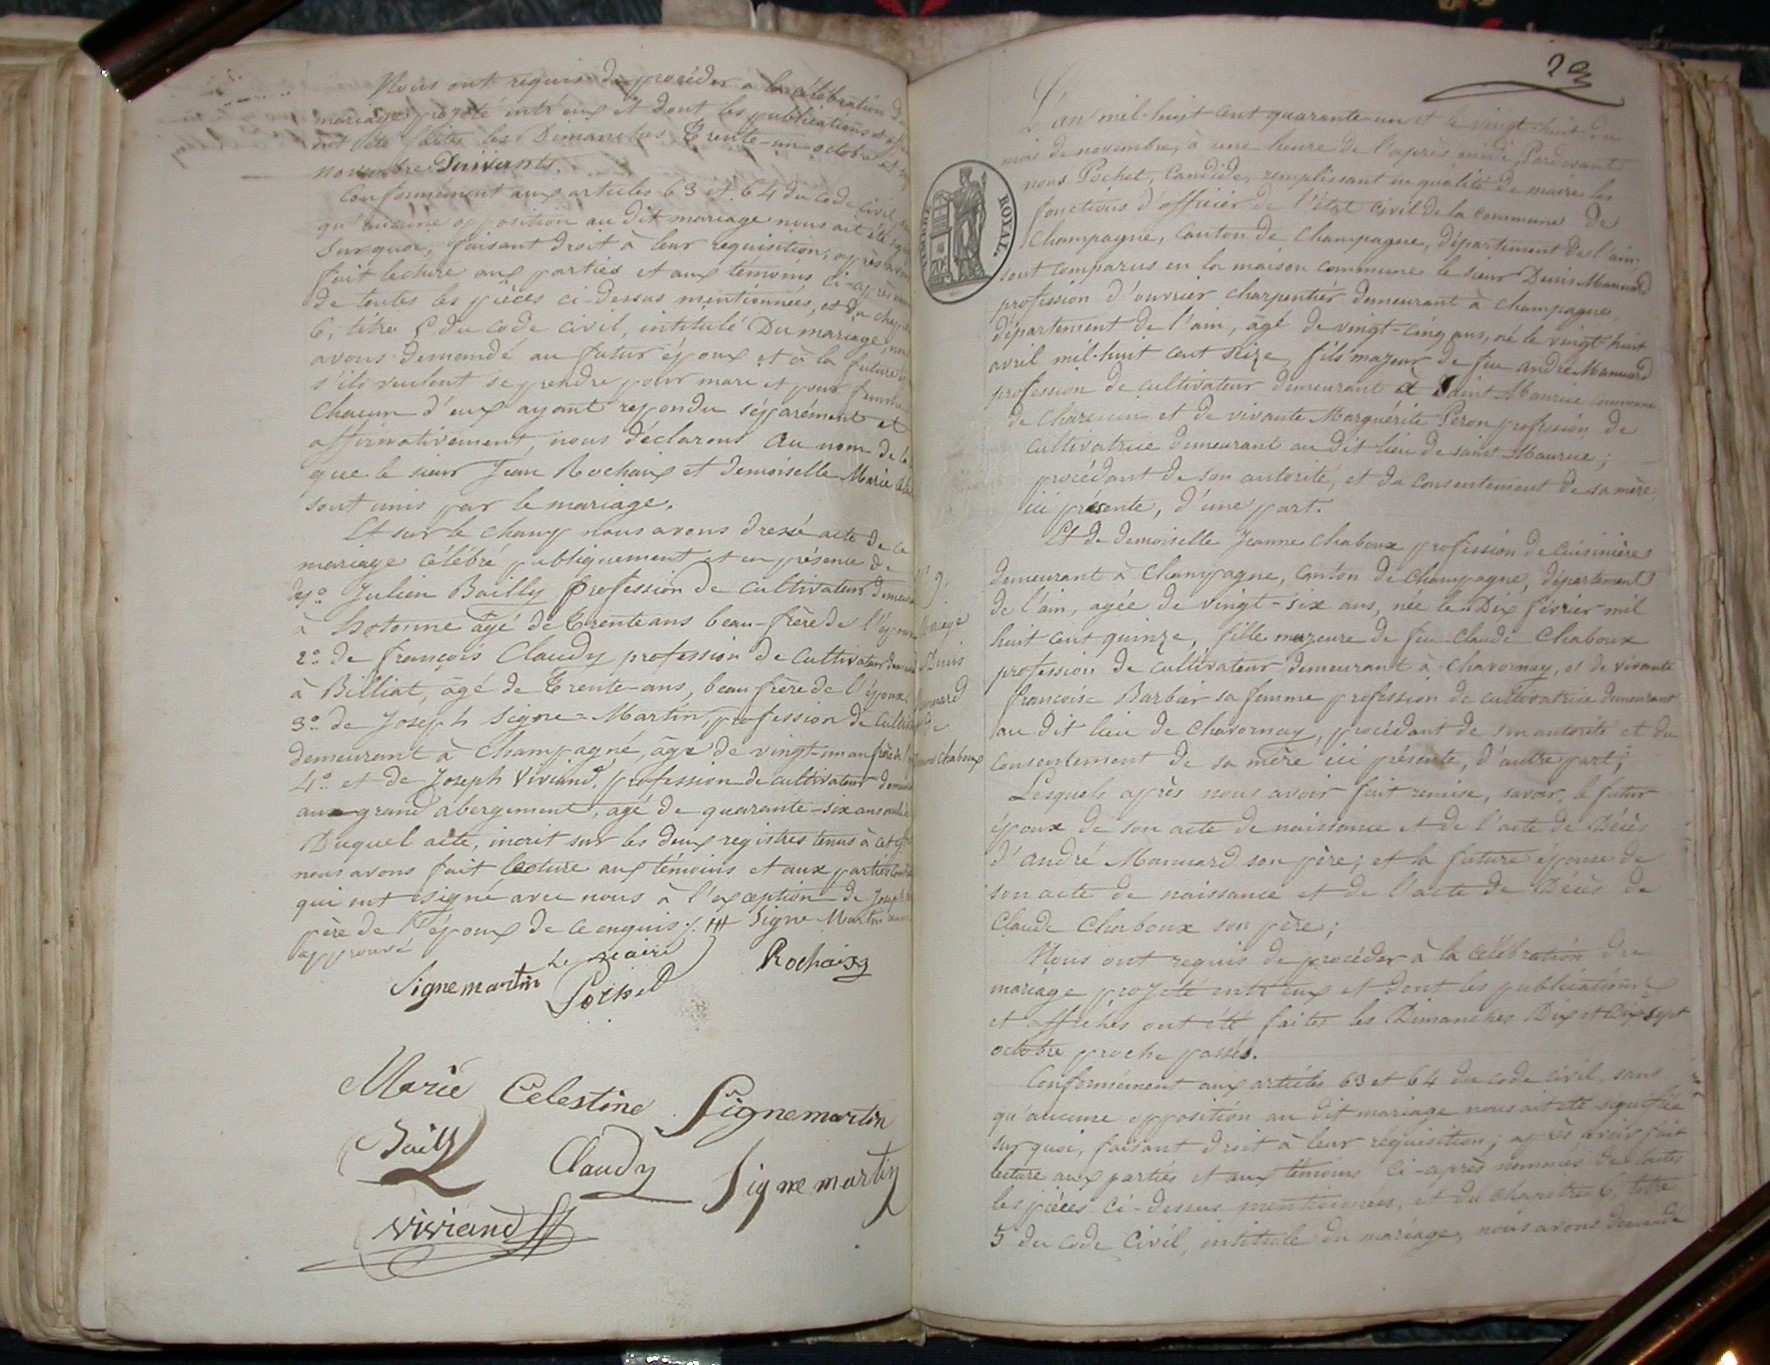 Nous ont requis de procéder a la célébration de
mariage projeté entr'eux et dont les publications
ont été faites les Dimanches Trente-un octobre et
novembre suivants.
Conformément aux articles 63 et 64 du code civil
qu'aucune opposition au dit mariage nous ait été
Sur quoi, faisant droit à leur requisition, après avoir
fait lecture aux parties et aux témoins ci-après
de toutes les pièces ci-dessus mentionnées, et du
6, titre 5 du code civil, intitulé Du mariage, nous
avons demandé au futur époux et à la future
s'ils veulent se prendre pour mari et pour femme
chacun d'eux ayant repondu séparément et
affirmativement, nous déclarons au nom de la
que le sieur Jean Rochaix et demoiselle Marie
sont unis par le mariage.
Et sur le champ nous avons dressé acte de ce
mariage célébré publiquement et en présence de
Julien Bailly profession de cultivateur
à hotonne âgé de Trente ans beau-frère de l'époux
2° de françois Claudy profession de cultivateur
à Billiat, âgé de Trente-ans, beau frère de l'époux
3° de Joseph Signe-Martin, profession de
demeurant à Champagne, âgé de vingt-un an frère
4° et de Joseph Viviand, profession de cultivateur
au grand abergement, agé de quarante-six ans
Duquel acte, inscrit sur les deux registres tenus à cet
nous avons fait lecture aux témoins et aux parties
qui ont signé avec nous à l'exception de Joseph
père de l'époux de ce enquis ./. Signe Martin
approuvé
Le maire
Signemartin Pochet Rochaix
Marie Celestine Signemartin
Bailly Claudy Signemartin
Viviand
29
L'an mil-huit cent quarante-un et le vingt-huit du
mois de novembre, à une heure de l'après midi, Pardevant
nous Pochet, Candide, remplissant en qualité de maire les
fonctions d'officier de l'état civil de la commune de
Champagne, Canton de Champagne, département de l'ain
sont comparus en la maison commune le sieur Denis Manuard
profession d'ouvrier charpentier demeurant à Champagne
département de l'ain, âgé de vingt-cinq ans, né le vingt huit
avril mil-huit cent seize, fils majeur de feu andré Manuard
profession de cultivateur demeurant à Saint Maurice commune
de Charencin et de vivante Marguerite Peron profession de
cultivatrice demeurant au dit lieu de saint Maurice;
procédant de son autorité, et du consentement de sa mère
ici présente, d'une part.
Et de demoiselle Jeanne Chaboux profession de cuisinière
demeurant à Champagne, canton de Champagne, département
de l'ain, agée de vingt-six ans, née le Dix février mil
huit cent quinze, fille majeure de feu Claude Chaboux
profession de cultivateur demeurant à Chavornay, et de vivante
françoise Barbier sa femme profession de cultivatrice demeurant
au dit lieu de Chavornay, procédant de son autorité et du
consentement de sa mère ici présente, d'autre part;
Lesquels après nous avoir fait remise, savoir, le futur
époux de son acte de naissance et de l'acte de Décès
d'andré Manuard son père; et la future épouse de
son acte de naissance et de l'acte de Décès de
Claude Chaboux son père;
Nous ont requis de procéder à la célébration du
mariage projeté entr'eux et dont les publications
et affiches ont été faites les Dimanches Dix et Dix sept
octobre proche passés.
Conformément aux articles 63 et 64 du code civil, sans
qu'aucune opposition au dit mariage nous ait été signifiée
sur quoi, faisant droit à leur réquisition; après avoir fait
lecture aux parties et aux témoins ci-après nommés de toutes
les pièces ci-dessus mentionnées, et du chapitre 6, titre
5 du code Civil, intitulé du mariage, nous avons demandé
ROYAL.
9.
Mariage
Denis
Manuard
Jeanne Chaboux